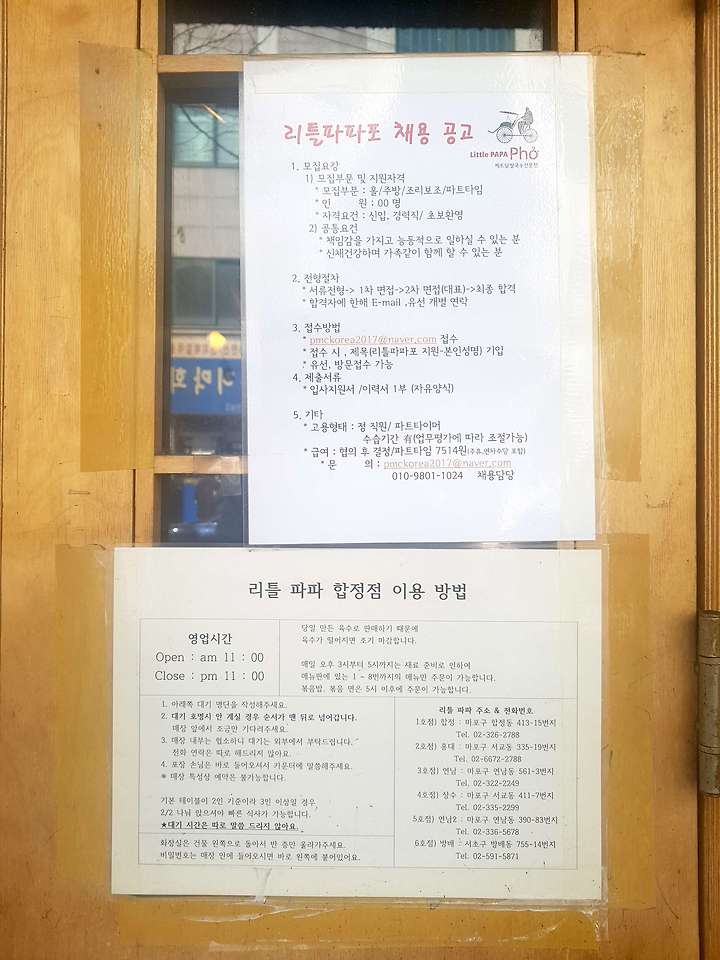 리틀파파포 채용 공고
Little PAPA Phở
베트남쌀국수전문점
1. 모집요강
1) 모집부문 및 지원자격
* 모집부문 : 홀/주방/조리보조/파트타임
* 인 원 : 00 명
* 자격요건 : 신입, 경력직/ 초보환영
2) 공통요건
* 책임감을 가지고 능동적으로 일하실 수 있는 분
* 신체건강하며 가족같이 함께 할 수 있는 분
2. 전형절차
* 서류전형-> 1차 면접->2차 면접(대표)->최종 합격
* 합격자에 한해 E-mail ,유선 개별 연락
3. 접수방법
* pmckorea2017@naver.com 접수
* 접수 시 , 제목(리틀파파포 지원-본인성명) 기입
* 유선, 방문접수 가능
4. 제출서류
* 입사지원서 /이력서 1부 (자유양식)
5. 기타
* 고용형태 : 정 직원/ 파트타이머
수습기간 有(업무평가에 따라 조절가능)
* 급여 : 협의 후 결정/파트타임 7514원(주휴,연차수당 포함)
* 문 의 : pmckorea2017@naver.com
010-9801-1024 채용담당
리틀 파파 합정점 이용 방법
영업시간
Open : am 11 : 00
Close : pm 11 : 00
당일 만든 육수로 판매하기 때문에
육수가 떨어지면 조기 마감합니다.
매일 오후 3시부터 5시까지는 재료 준비로 인하여
메뉴판에 있는 1 ~ 8번까지의 메뉴만 주문이 가능합니다.
볶음밥, 볶음 면은 5시 이후에 주문이 가능합니다.
1. 아래쪽 대기 명단을 작성해주세요.
2. 대기 호명시 안 계실 경우 순서가 맨 뒤로 넘어갑니다.
매장 앞에서 조금만 기다려주세요.
3. 매장 내부는 협소하니 대기는 외부에서 부탁드립니다.
전화 연락은 따로 해드리지 않아요.
4. 포장 손님은 바로 들어오셔서 카운터에 말씀해주세요.
※ 매장 특성상 예약은 불가능합니다.
기본 테이블이 2인 기준이라 3인 이상일 경우
2/2 나눠 앉으셔야 빠른 식사가 가능합니다.
★대기 시간은 따로 말씀 드리지 않아요.
화장실은 건물 왼쪽으로 돌아서 반 층만 올라가주세요.
비밀번호는 매장 안에 들어오시면 바로 왼쪽에 붙어있어요.
리틀 파파 주소 & 전화번호
1호점) 합정 : 마포구 합정동 413-15번지
Tel. 02-326-2788
2호점) 홍대 : 마포구 서교동 335-19번지
Tel. 02-6672-2788
3호점) 연남 : 마포구 연남동 561-3번지
Tel. 02-322-2249
4호점) 상수 : 마포구 서교동 411-7번지
Tel. 02-335-2299
5호점) 연남2 : 마포구 연남동 390-83번지
Tel. 02-336-5678
6호점) 방배 : 서초구 방배동 755-14번지
Tel. 02-591-5871